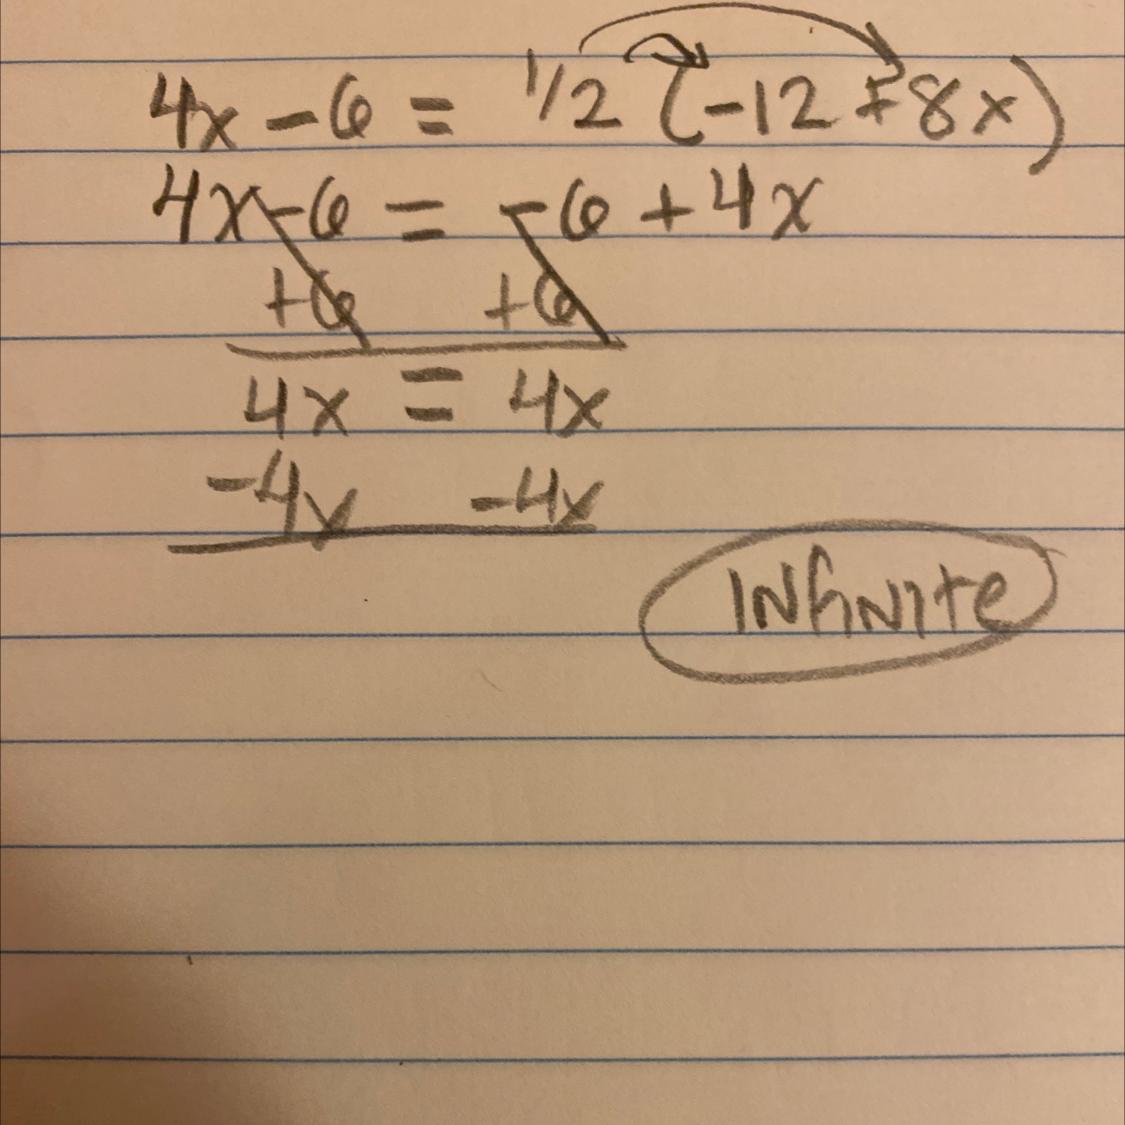 4x - 6 = 1/2 (-12 + 8x)
4x - 6 = -6 + 4x
+6 +6
4x = 4x
-4x -4x
INfiNite